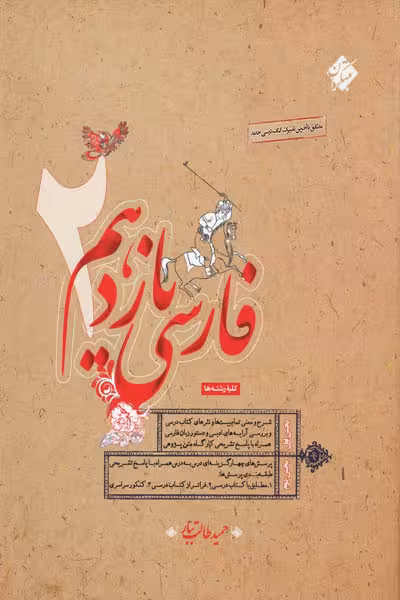 مبتکران
منطبق با آخرین تغییرات کتاب درسی جدید
۲
فارسی یازدهم
کلیهٔ رشته‌ها
بخش اول
شرح و معنی تمام بیت‌ها و نثرهای کتاب درسی
و بررسی آرایه‌های ادبی و دستور زبان فارسی
همراه با پاسخ تشریحی کارگاه متن پژوهی
بخش دوم
پرسش‌های چهارگزینه‌ای درس به درس همراه با پاسخ تشریحی
طبقه‌بندی پرسش‌ها:
۱. مطابق با کتاب درسی ۲. فراتر از کتاب درسی ۳. کنکور سراسری
حمید طالب تبار